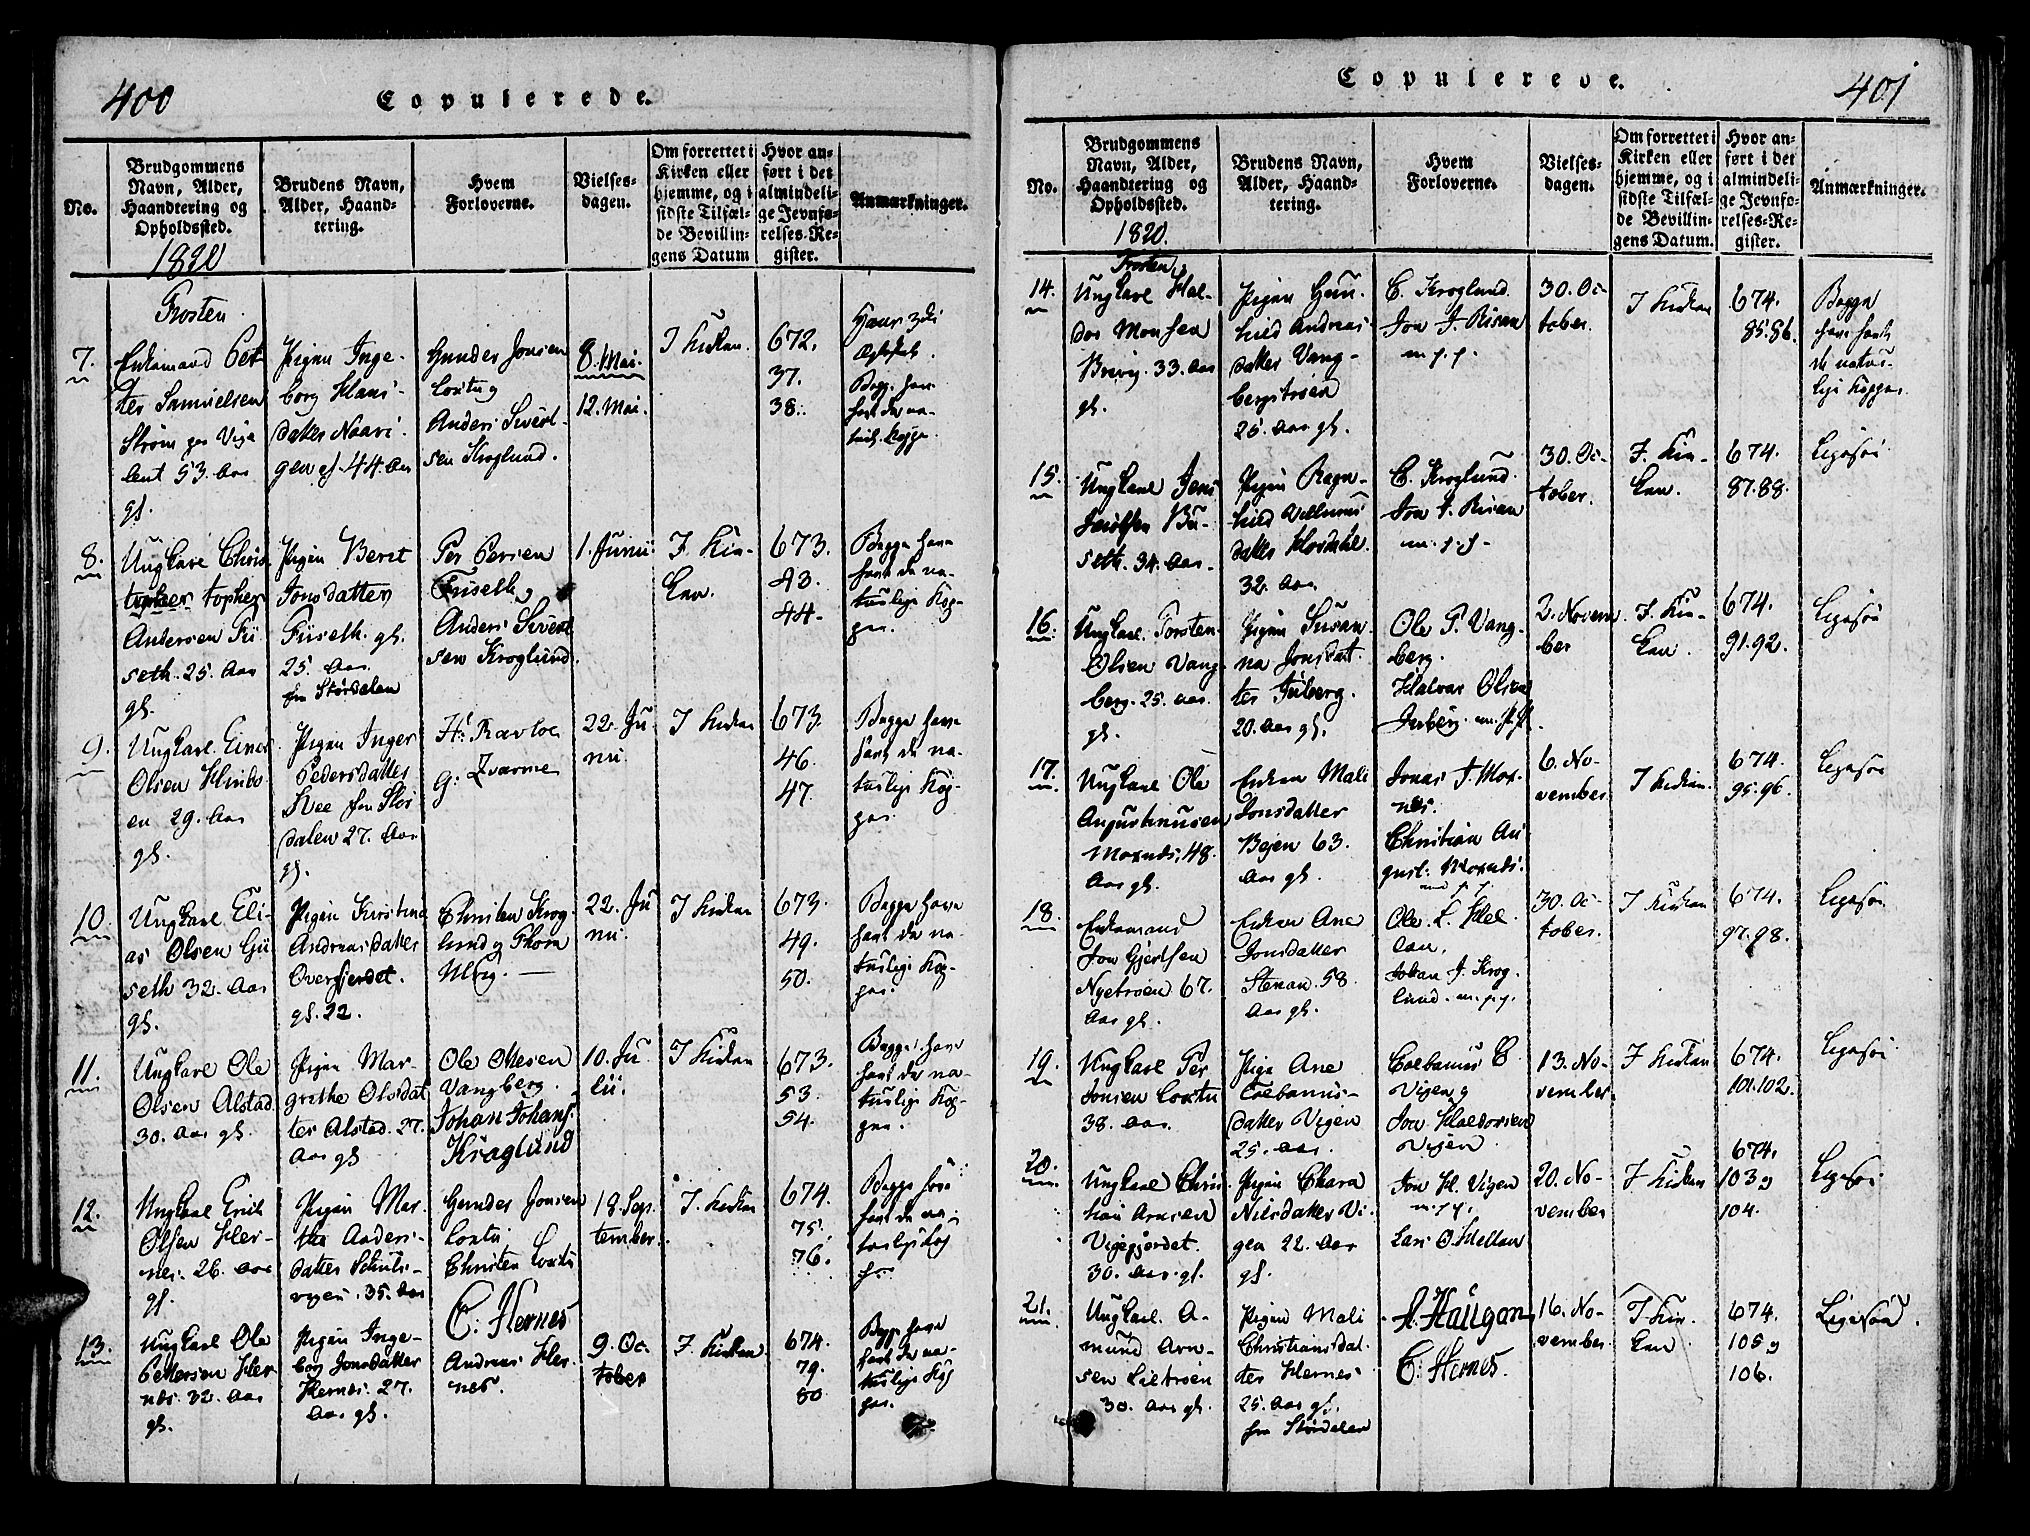 400
Copulerede.
No.
Brudgommens
Navn, Alder,
Haandtering og
Opholdssted.
1820
Brudens Navn,
Alder, Haand-
tering.
Hvem
Forloverne.
Vielses-
dagen.
Om forrettet i
Kirken eller
hjemme, og i
sidste Tilfæl-
de Bevillin-
gens Datum
Hvor an-
ført i det
almindeli-
ge Jevnfø-
relses-Re-
gister.
Anmærkninger.
Frosten.
7.
Enkemand Pet-
ter Samuelsen
Strøm
53. Aar
gl.
Pigen Inge-
borg Hans-
datter
gl. 44. Aar
Gunder Jonsen
Loxtu og
Anders Sivert-
sen Kroglund.
8. Mai.
12. Mai.
I Kirken.
672.
37.
38.
Begge have
havt de na-
turl. Kopper
8.
Ungkarl Chris-
topher
Andersen Fii-
seth. 25. Aar
gl.
Pigen Beret
Jonsdatter
Fiiseth. gl.
25. Aar.
fra Størdalen
Per Persen
Fiiseth,
Anders Sivert
sen Kroglund.
1. Junii
I Kir-
ken.
673.
43.
44.
Begge have
havt de na-
turlige Kop-
per.
9.
Ungkarl Einer
Olsen Hinbo-
en 29. Aar
gl.
Pigen Inger
Pedersdatter
fra Stør
dalen 27. Aar
gl.
H: Ravloe
G: Zvarme
22. Ju-
nii.
I Kirken
673.
46.
47.
Begge have
havt de na-
turlige Kop-
per.
10.
Ungkarl Eli-
as Olsen Gii
seth 32. Aar
gl.
Pigen Kirstina
Andreasdatter
Overfierdet.
gl. 22.
Christen Krog-
lund og Thore
22. Ju
nii.
I Kirken
673.
49.
50.
Begge have
havt de na-
turlige Kop-
per.
11.
Ungkarl Ole
Olsen Alstad
30. Aar gl.
Pigen Mar-
grethe Olsdat
ter Alstad. 27.
Aar gl
Ole Olesen
Vangberg.
Johan Johans.
Kraglund
10. Ju-
lii.
I Kirken
673.
53.
54.
Begge have
havt de na-
turlige Kop-
per.
12.
Ungkarl Erik
Olsen Her-
nes. 26. Aar
gl.
Pigen Mar-
tha Anders-
datter
35. Aar
Gunder Jonsen
Loxtu
Christen Loxtu
C. Hernes
18. Sep-
tember.
I. Kirken
674.
75.
76.
Begge have
havt de na-
turlige Kop
per.
13.
Ungkarl Ole
Pettersen Her
nes. 32. Aar
gl.
Pigen Inge-
borg Jonsdatter
Hernes. 27.
Aar gl.
Andreas Her-
nes.
9. Oc-
tober
I. Kirken.
674.
79.
80
Begge have
havt de na-
turlige Kop
per.
401
Copulerede.
No.
Brudgommens
Navn, Alder,
Haandtering og
Opholdssted.
1820.
Brudens Navn,
Alder, Haand-
tering.
Hvem
Forloverne.
Vielses-
dagen.
Om forrettet i
Kirken eller
hjemme, og i
sidste Tilfæl-
de Bevillin-
gens Datum.
Hvor an-
ført i det
almindeli-
ge Jevnfø-
relses-Re-
gister.
Anmærkninger.
Frosten
14.
Ungkarl Hal-
dor Monsen
Brevig. 33. Aar
gl.
Pigen Gun-
hild Andreas-
datter Vang-
bergstrøen
25. Aar gl.
C. Kroglund.
Jon J. Risan
m. p. p.
30. Oc-
tober.
I Kirken
674.
85.86.
Begge
have havt
de natur-
lige Kopper.
15.
Ungkarl Jens
34. Aar.
Pigen Ragn-
hild
datter
32. Aar.
C. Kroglund.
Jon J. Risan
m. p. p.
30. Oc-
tober.
I. Kir-
ken.
674.
87.88.
Ligesaa
16.
Ungkarl Torsten
Olsen Vang-
berg. 25. Aar.
gl.
Pigen Susan-
na Jonsdat-
ter
20. Aar gl.
Ole P. Vang-
berg.
Halvar Olsen
2. Novem
ber
I. Kir-
ken.
674.
91.92.
Ligesaa
17.
Ungkarl Ole
Augustinusen
Moxnes, 48.
Aar gl.
Enken Mali
Jonsdatter
63.
Aar gl.
Jonas J. Mox-
nes.
Christian Au
gust. Moxnes.
6. No-
vember
I Kirken.
674.
95.96.
Ligesaa
18.
Enkemand
Jon Gjertsen
Nyetrøen 67.
Aar gl.
Enken Ane
Jonsdatter
Stenan. 58
Aar gl.
Ole
Johan J. Krog-
lund. m.p.p.
30. Oc-
tober.
I Kirken
674.
97.98.
Ligesaa
19.
Ungkarl Per
Jonsen Loxtu
38. Aar.
Pige Ane
Colbanus-
datter Vigen
25. Aar.
Colbanus C.
Vigen og
Jon Haldorsen
Vigen
13. No-
vember.
I Kirken
674.
101.102.
Ligesaa
20.
Ungkarl Chris-
tian Arnsen
Vigegjerdet.
30. Aar. gl.
Pigen Chara
Nilsdatter Vi-
gen 22. Aar
gl.
Jon H. Vigen
m. p. p.
Lars O. Hellan
20. No-
vember
I Kirken
674.
103 og
104.
Ligesaa
21.
Ungkarl. A-
mund Arn-
sen Lietrøen
30. Aar gl.
Pigen Mali
Christiansdat-
ter Hernes
25. Aar gl.
fra Størdalen
A. Haugan
C. Hernes.
16. No-
vember.
I Kir-
ken
674.
105 og
106.
Ligesaa.